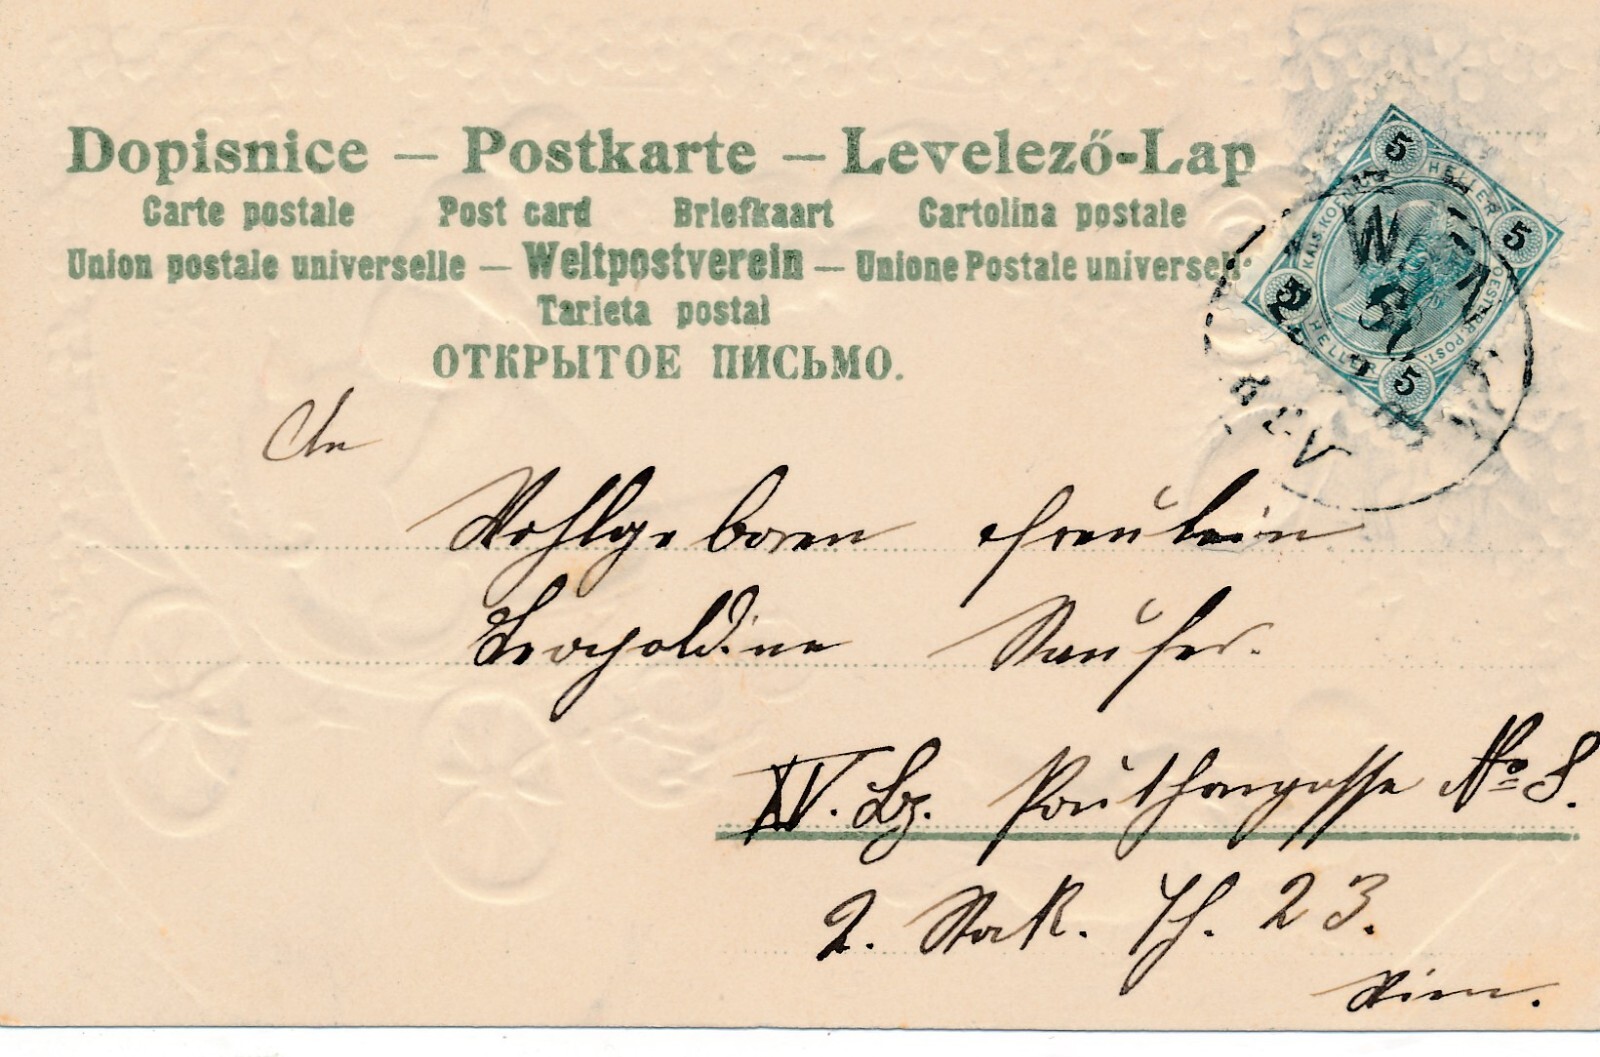 Dopisnice — Postkarte — Levelező-Lap
Carte postale Post card Briefkaart Cartolina postale
Union postale universelle — Weltpostverein — Unione Postale universell
Tarieta postal
ОТКРЫТОЕ ПИСЬМО.
5 HELLER 5 HELLER 5 5
KAIS. KOE OESTERR. POST.
WIEN
An
Wohlgeboren Fräulein
Leopoldine
XV. Bz. No 8.
2. Stock. Th. 23.
Wien.